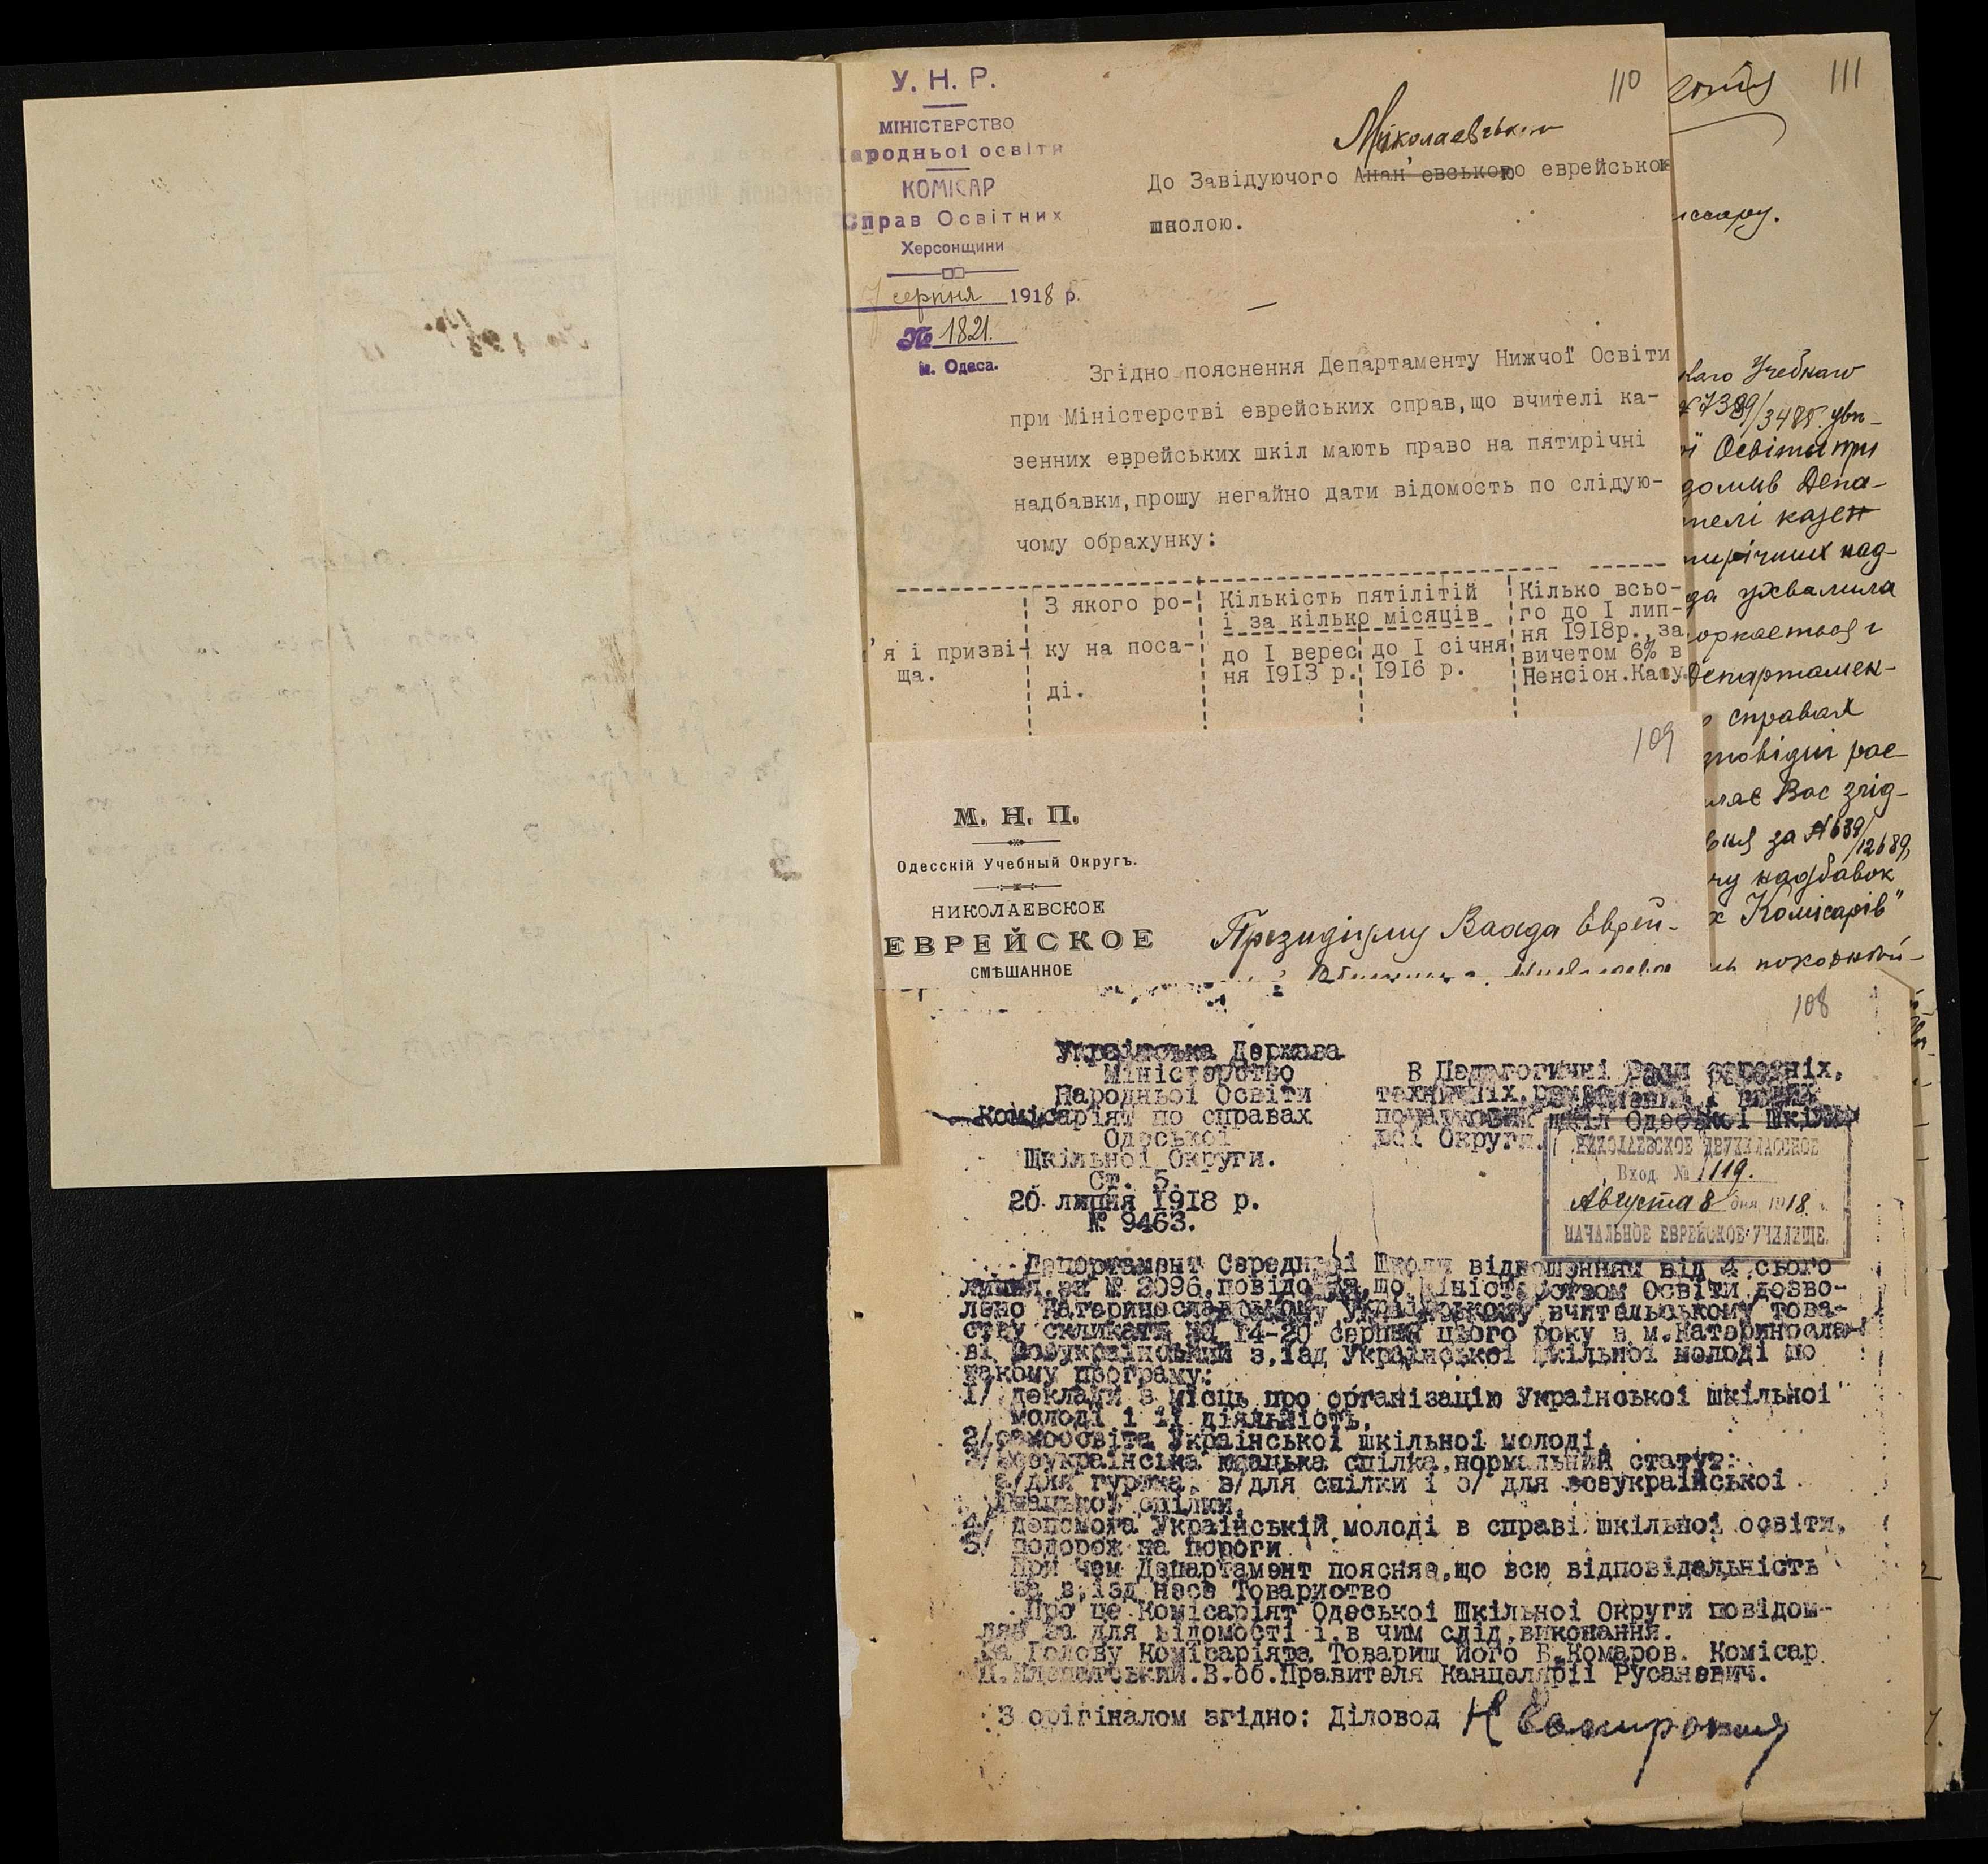 110
У. Н. Р.
МІНІСТЕРСТВО
народньоі освіти
КОМІСАР
Справ Освітних
Херсонщини
7 серпня 1918 р.
№ 1821.
м. Одеса.
Міколаевською
До Завідуючого Анан'евською еврейською
школою.
Згідно пояснення Департаменту Нижчоі Освіти
при Міністерстві еврейських справ, що вчителі ка-
зенних еврейських шкіл мають право на пятирічні
надбавки, прошу негайно дати відомость по слідую-
чому обрахунку:
'я і призві-
ща.
З якого ро-
ку на поса-
ді.
Кількість пятілітій
і за кілько місяців
до І верес
ня 1913 р.
до І січня
1916 р.
Кілько всьо-
го до І лип-
ня 1918р., за
вичетом 6% в
Пенсіон.Касу.
111
ссару.
каго Учебнаго
7389/3485 уві-
Освіти при
домив Депа-
телі казен
пирічних над-
да ухвалила
Департамен-
справах
повідні рос-
лає Вас згід-
за № 639/12689,
чу надбавок
х Комісарів"
109
М. Н. П.
Одесскій Учебный Округъ.
НИКОЛАЕВСКОЕ
ЕВРЕЙСКОЕ
СМѢШАННОЕ
Президіуму Ваада Еврей-
108
Украінська Держава
Міністерство
Народньоі Освіти
Комісаріят по справах
Одеськоі
Шкільноі Округи.
Ст. 5.
20 липня 1918 р.
№ 9463.
В Педагогичні Ради середніх,
технічніх,
початкових шкіл Одеськоі Шкіль-
ноі Округи.
НИКОЛАЕВСКОЕ ДВУХКЛАССНОЕ
Вход. № 1119.
Августа 8 дня 1918 г.
НАЧАЛЬНОЕ ЕВРЕЙСКОЕ УЧИЛИЩЕ.
Департамент Середньоі Школи відношенням від 4 сього
липня за № 2096, повідомив, що Міністерством Освіти дозво-
лено Катеринославському Украінському вчительському това-
ству скликати на 14-20 серпня цього року в м. Катериносла-
ві Всеукраінський з,ізд Украінськоі шкільноі молоді по
такому програму:
1/ доклади з місць про організацію Украінськоі шкільноі
молоді і іі діяльність,
2/ самоосвіта Украінськоі шкільноі молоді,
3/ всеукраінська юнацька спілка, нормальний статут:
а/ для гуртка, в/ для спілки і с/ для всеукраінськоі
юнацькоі спілки,
4/ допомога Украінській молоді в справі шкільноі освіти,
5/ подорож на пороги
При чем Департамент поясняе, що всю відповідальність
за з,ізд несе Товариство
Про це Комісаріят Одеськоі Шкільноі Округи повідом-
ляе за для відомості і в чим слід, виконання.
За Голову Комісаріята Товариш його Б.Комаров. Комісар
П.Клепатський. В.об.Правителя Канцеляріі Русаневич.
З орігіналом згідно: Діловод